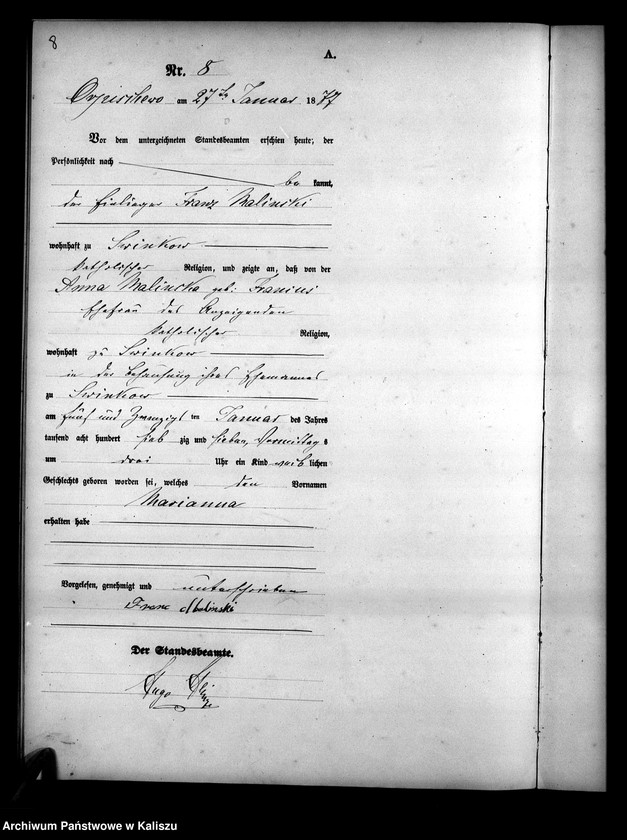 8
A.
Nr. 8
am 27ten Januar 1877
Vor dem unterzeichneten Standesbeamten erschien heute, der
Persönlichkeit nach
be kannt,
der Einlieger Franz Malinski
wohnhaft zu Swinkow
katholischer Religion, und zeigte an, daß von der
Anna Malinska geb:
Ehefrau des Anzeigenden
katholischer Religion,
wohnhaft zu Swinkow
in der Behausung ihres Ehemannes
zu Swinkow
am fünf und zwanzigs ten Januar des Jahres
tausend acht hundert sieb zig und sieben, Vormittag s
um drei Uhr ein Kind weib lichen
Geschlechts geboren worden sei, welches den Vornamen
Marianna
erhalten habe
Vorgelesen, genehmigt und unterschrieben
Franc Malinski
Der Standesbeamte.
Hugo
Archiwum Państwowe w Kaliszu